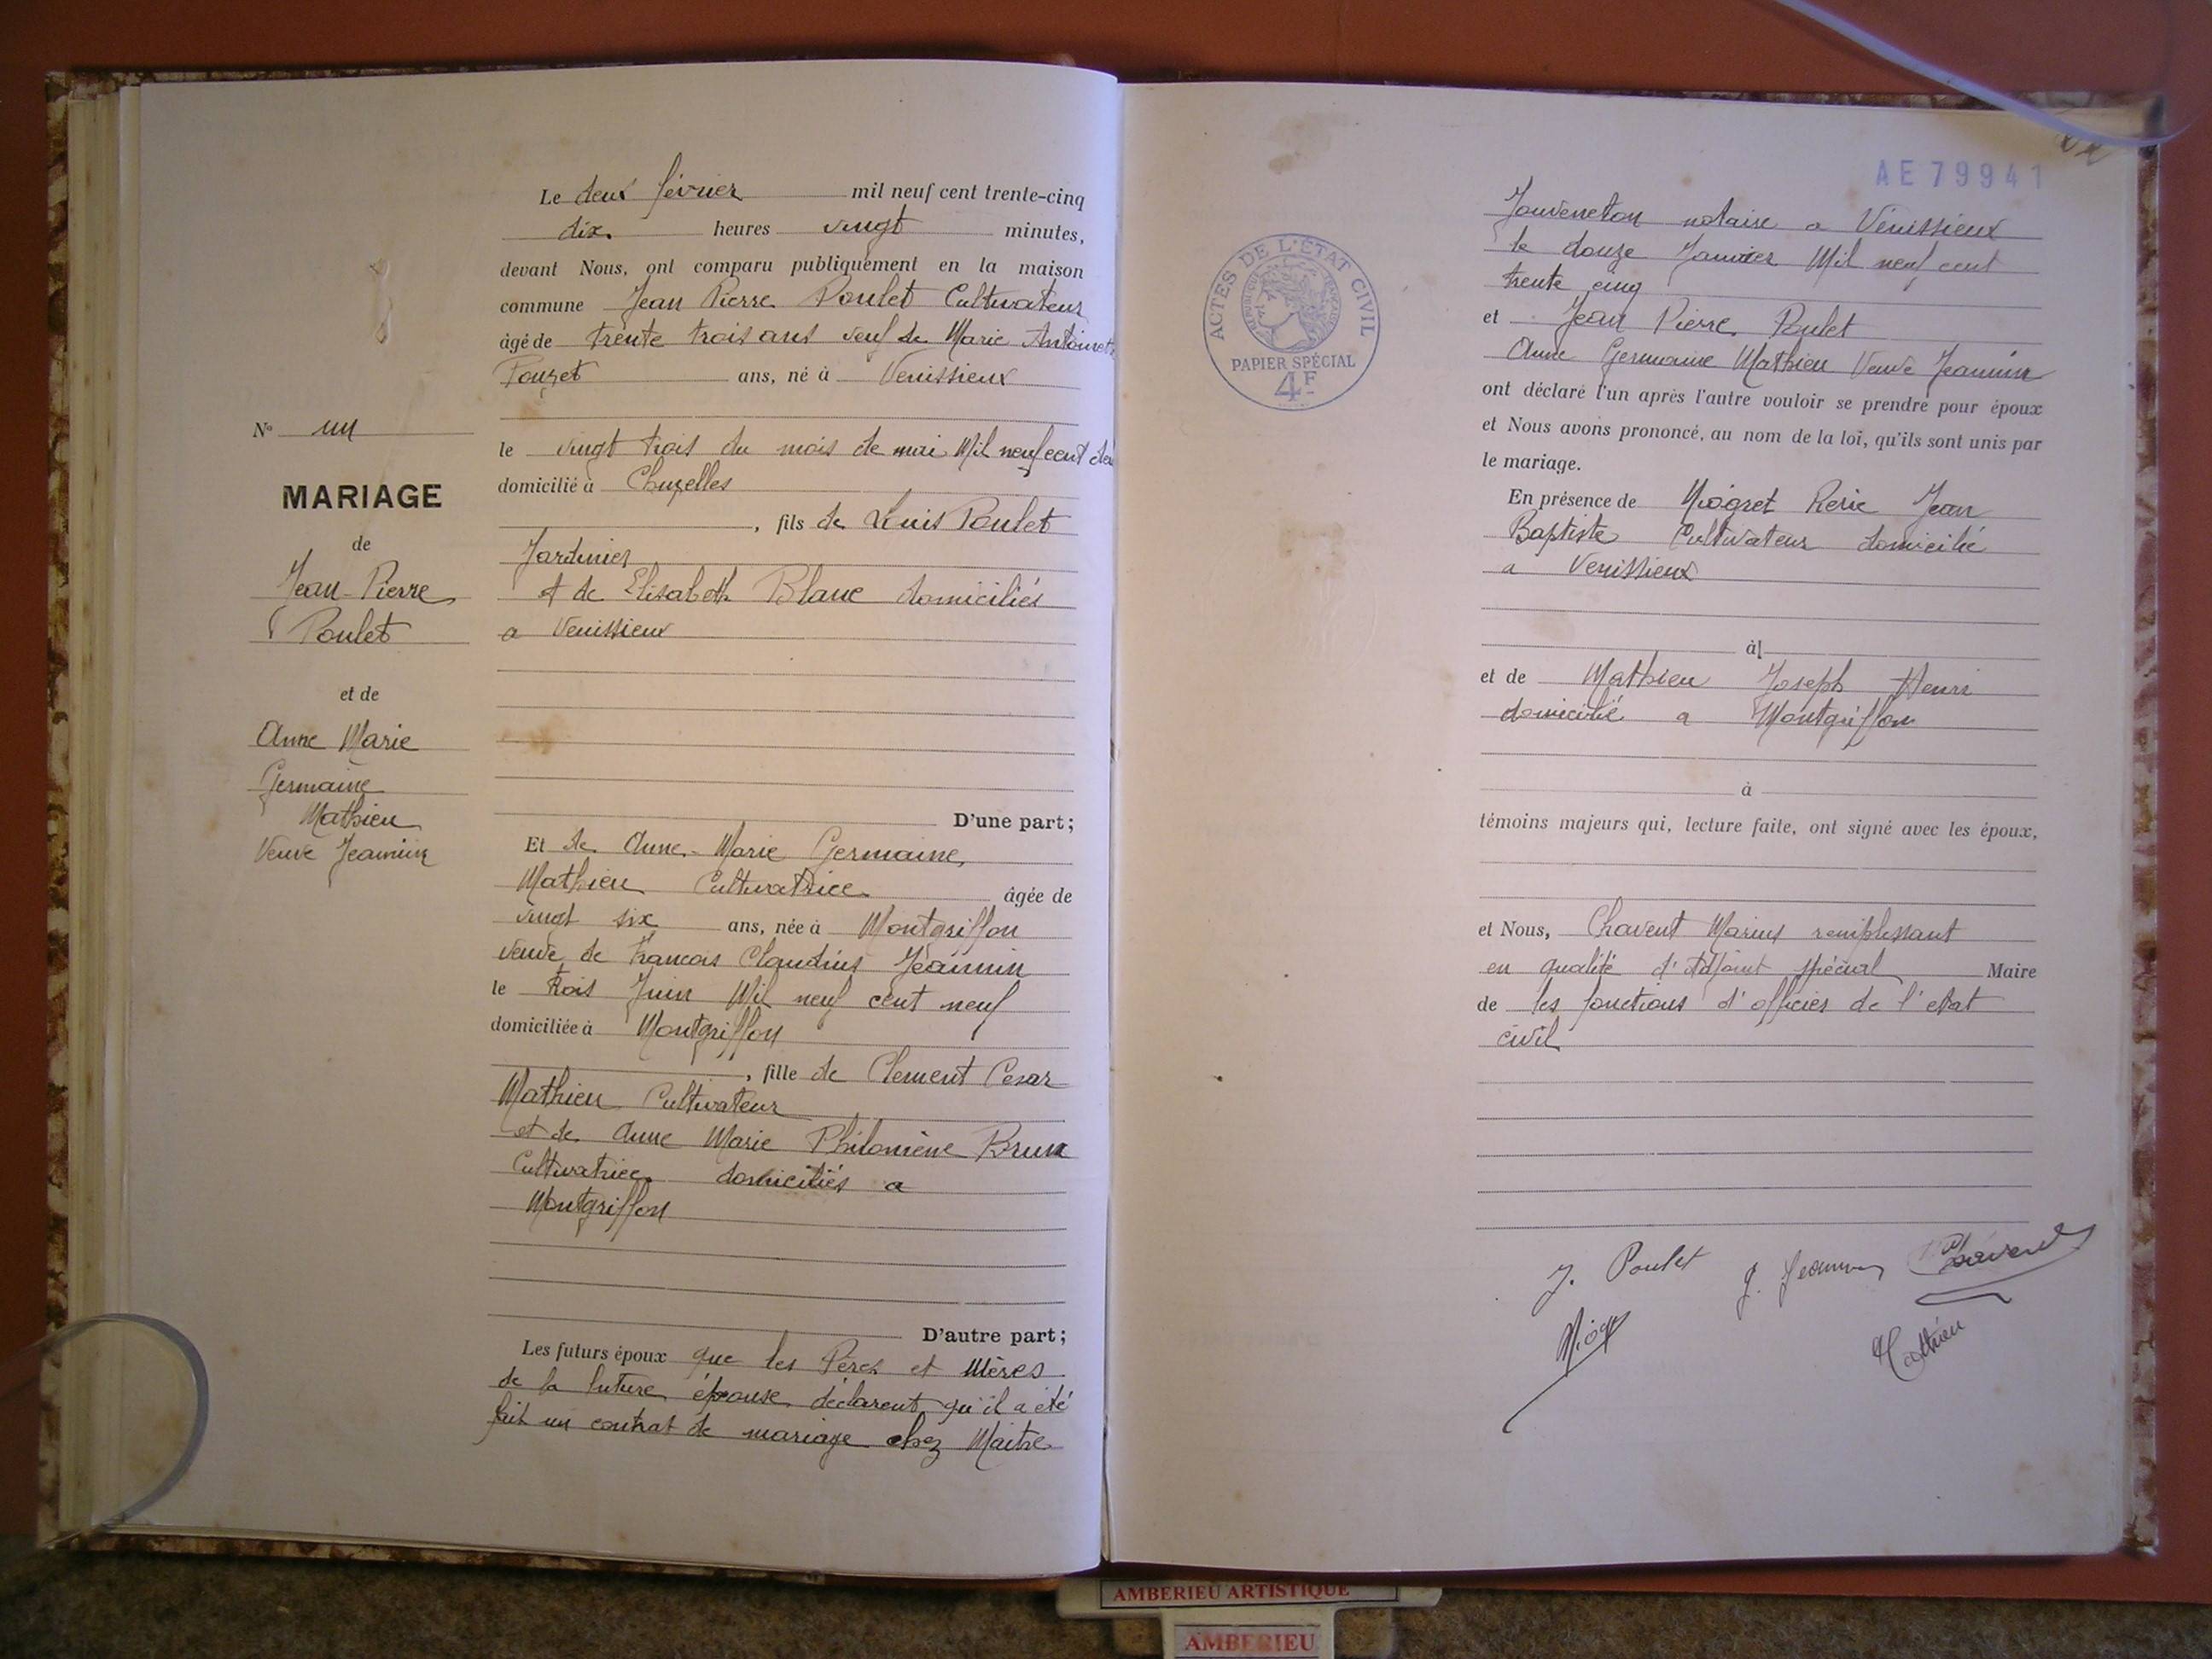 Le deux février mil neuf cent trente-cinq
dix heures vingt minutes,
devant Nous, ont comparu publiquement en la maison
commune Jean Pierre Poulet Cultivateur
âgé de trente trois ans veuf de Marie Antoinett
Pouzet ans, né à Venissieux
le vingt trois du mois de mai Mil neuf cent deu
domicilié à Chuzelles
, fils de Louis Poulet
Jardinier
et de Elisabeth Blanc domiciliés
a Venissieux
D'une part;
Et de Anne-Marie Germaine
Mathieu Cultivatrice âgée de
vingt six ans, née à Montgriffon
veuve de Francois Claudius Jeannin
le trois Juin Mil neuf cent neuf
domiciliée à Montgriffon
, fille de Clement Cesar
Mathieu Cultivateur
et de Anne Marie Philomène Brun
Cultivatrice domiciliés a
Montgriffon
D'autre part;
Les futurs époux que les Pères et Mères
de la future épouse déclarent qu'il a été
fait un contrat de mariage chez Maitre
No un
MARIAGE
de
Jean-Pierre
Poulet
et de
Anne Marie
Germaine
Mathieu
Veuve Jeannin
AE79941
ACTES DE L'ÉTAT CIVIL
RÉPUBLIQUE FRANÇAISE
PAPIER SPÉCIAL
4F
Jouveneton notaire a Vénissieux
le douze Janvier Mil neuf cent
trente cinq
et Jean Pierre Poulet
Anne Germaine Mathieu Veuve Jeannin
ont déclaré l'un après l'autre vouloir se prendre pour époux
et Nous avons prononcé, au nom de la loi, qu'ils sont unis par
le mariage.
En présence de Jean
Baptiste Cultivateur domicilié
a Venissieux
à
et de Mathieu Joseph Henri
domicilié a Montgriffon
à
témoins majeurs qui, lecture faite, ont signé avec les époux,
et Nous, Chavent Marius remplissant
en qualité d'Adjoint spécial Maire
de les fonctions d'officier de l'etat
civil
J. Poulet G. Jeannin Chavent
Mathieu
AMBERIEU ARTISTIQUE
AMBERIEU